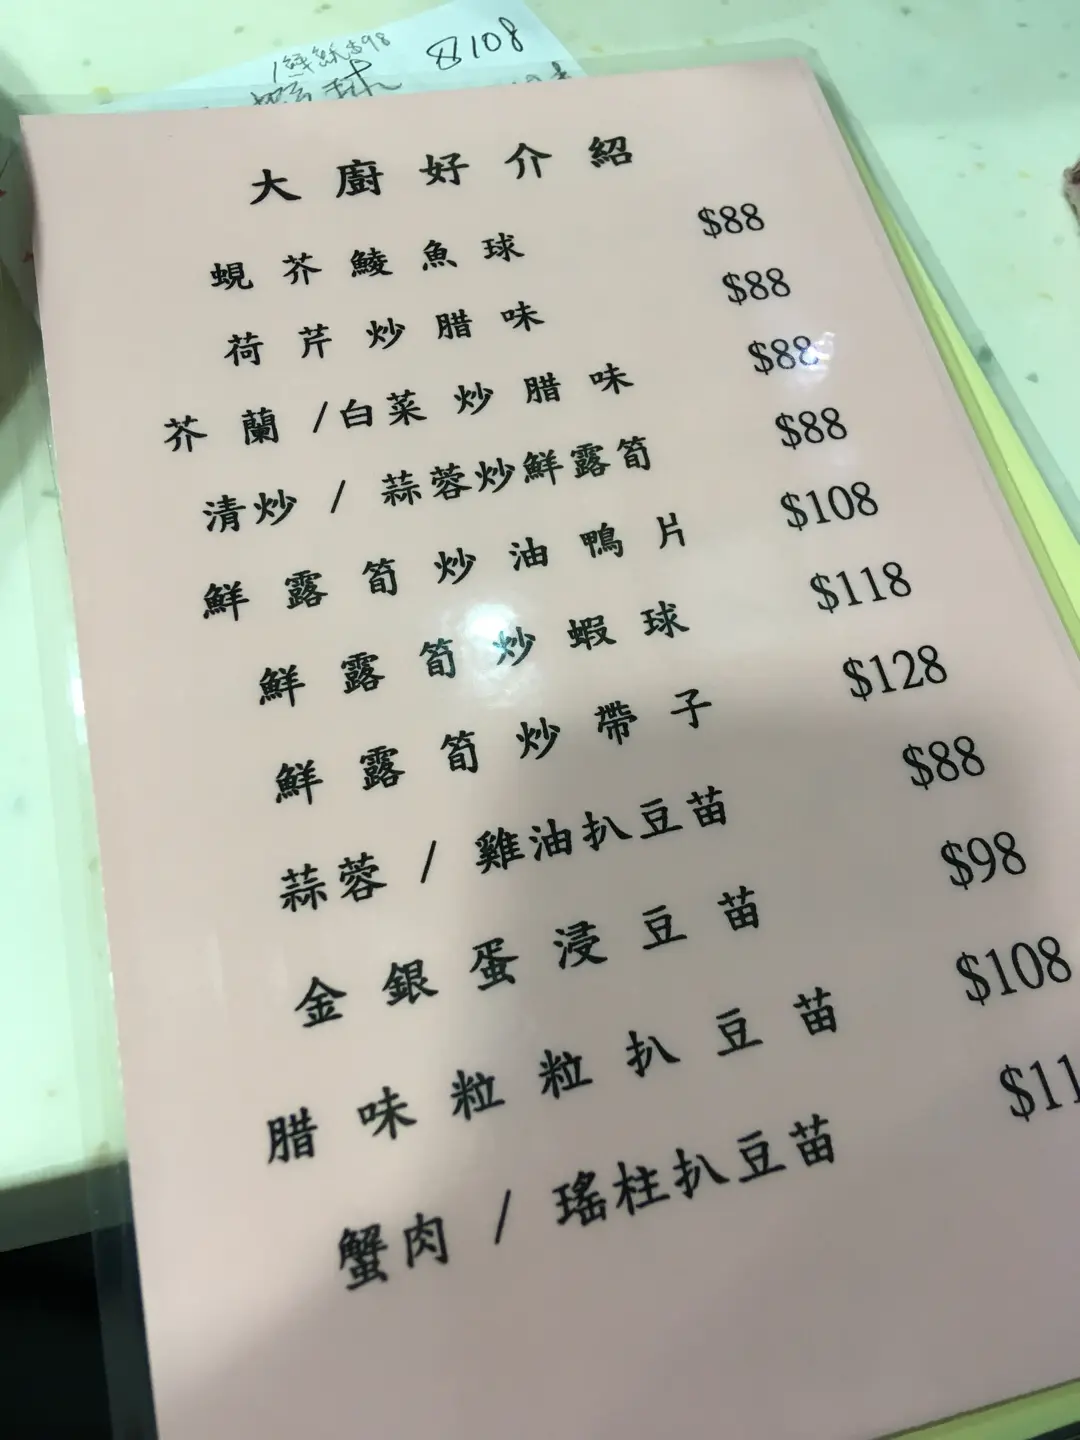 $108
大廚好介紹
蜆芥鯪魚球 $88
荷芹炒腊味 $88
芥蘭/白菜炒腊味 $88
清炒/蒜蓉炒鮮露筍 $88
鮮露筍炒油鴨片 $108
鮮露筍炒蝦球 $118
鮮露筍炒帶子 $128
蒜蓉/雞油扒豆苗 $88
金銀蛋浸豆苗 $98
腊味粒粒扒豆苗 $108
蟹肉/瑤柱扒豆苗 $11